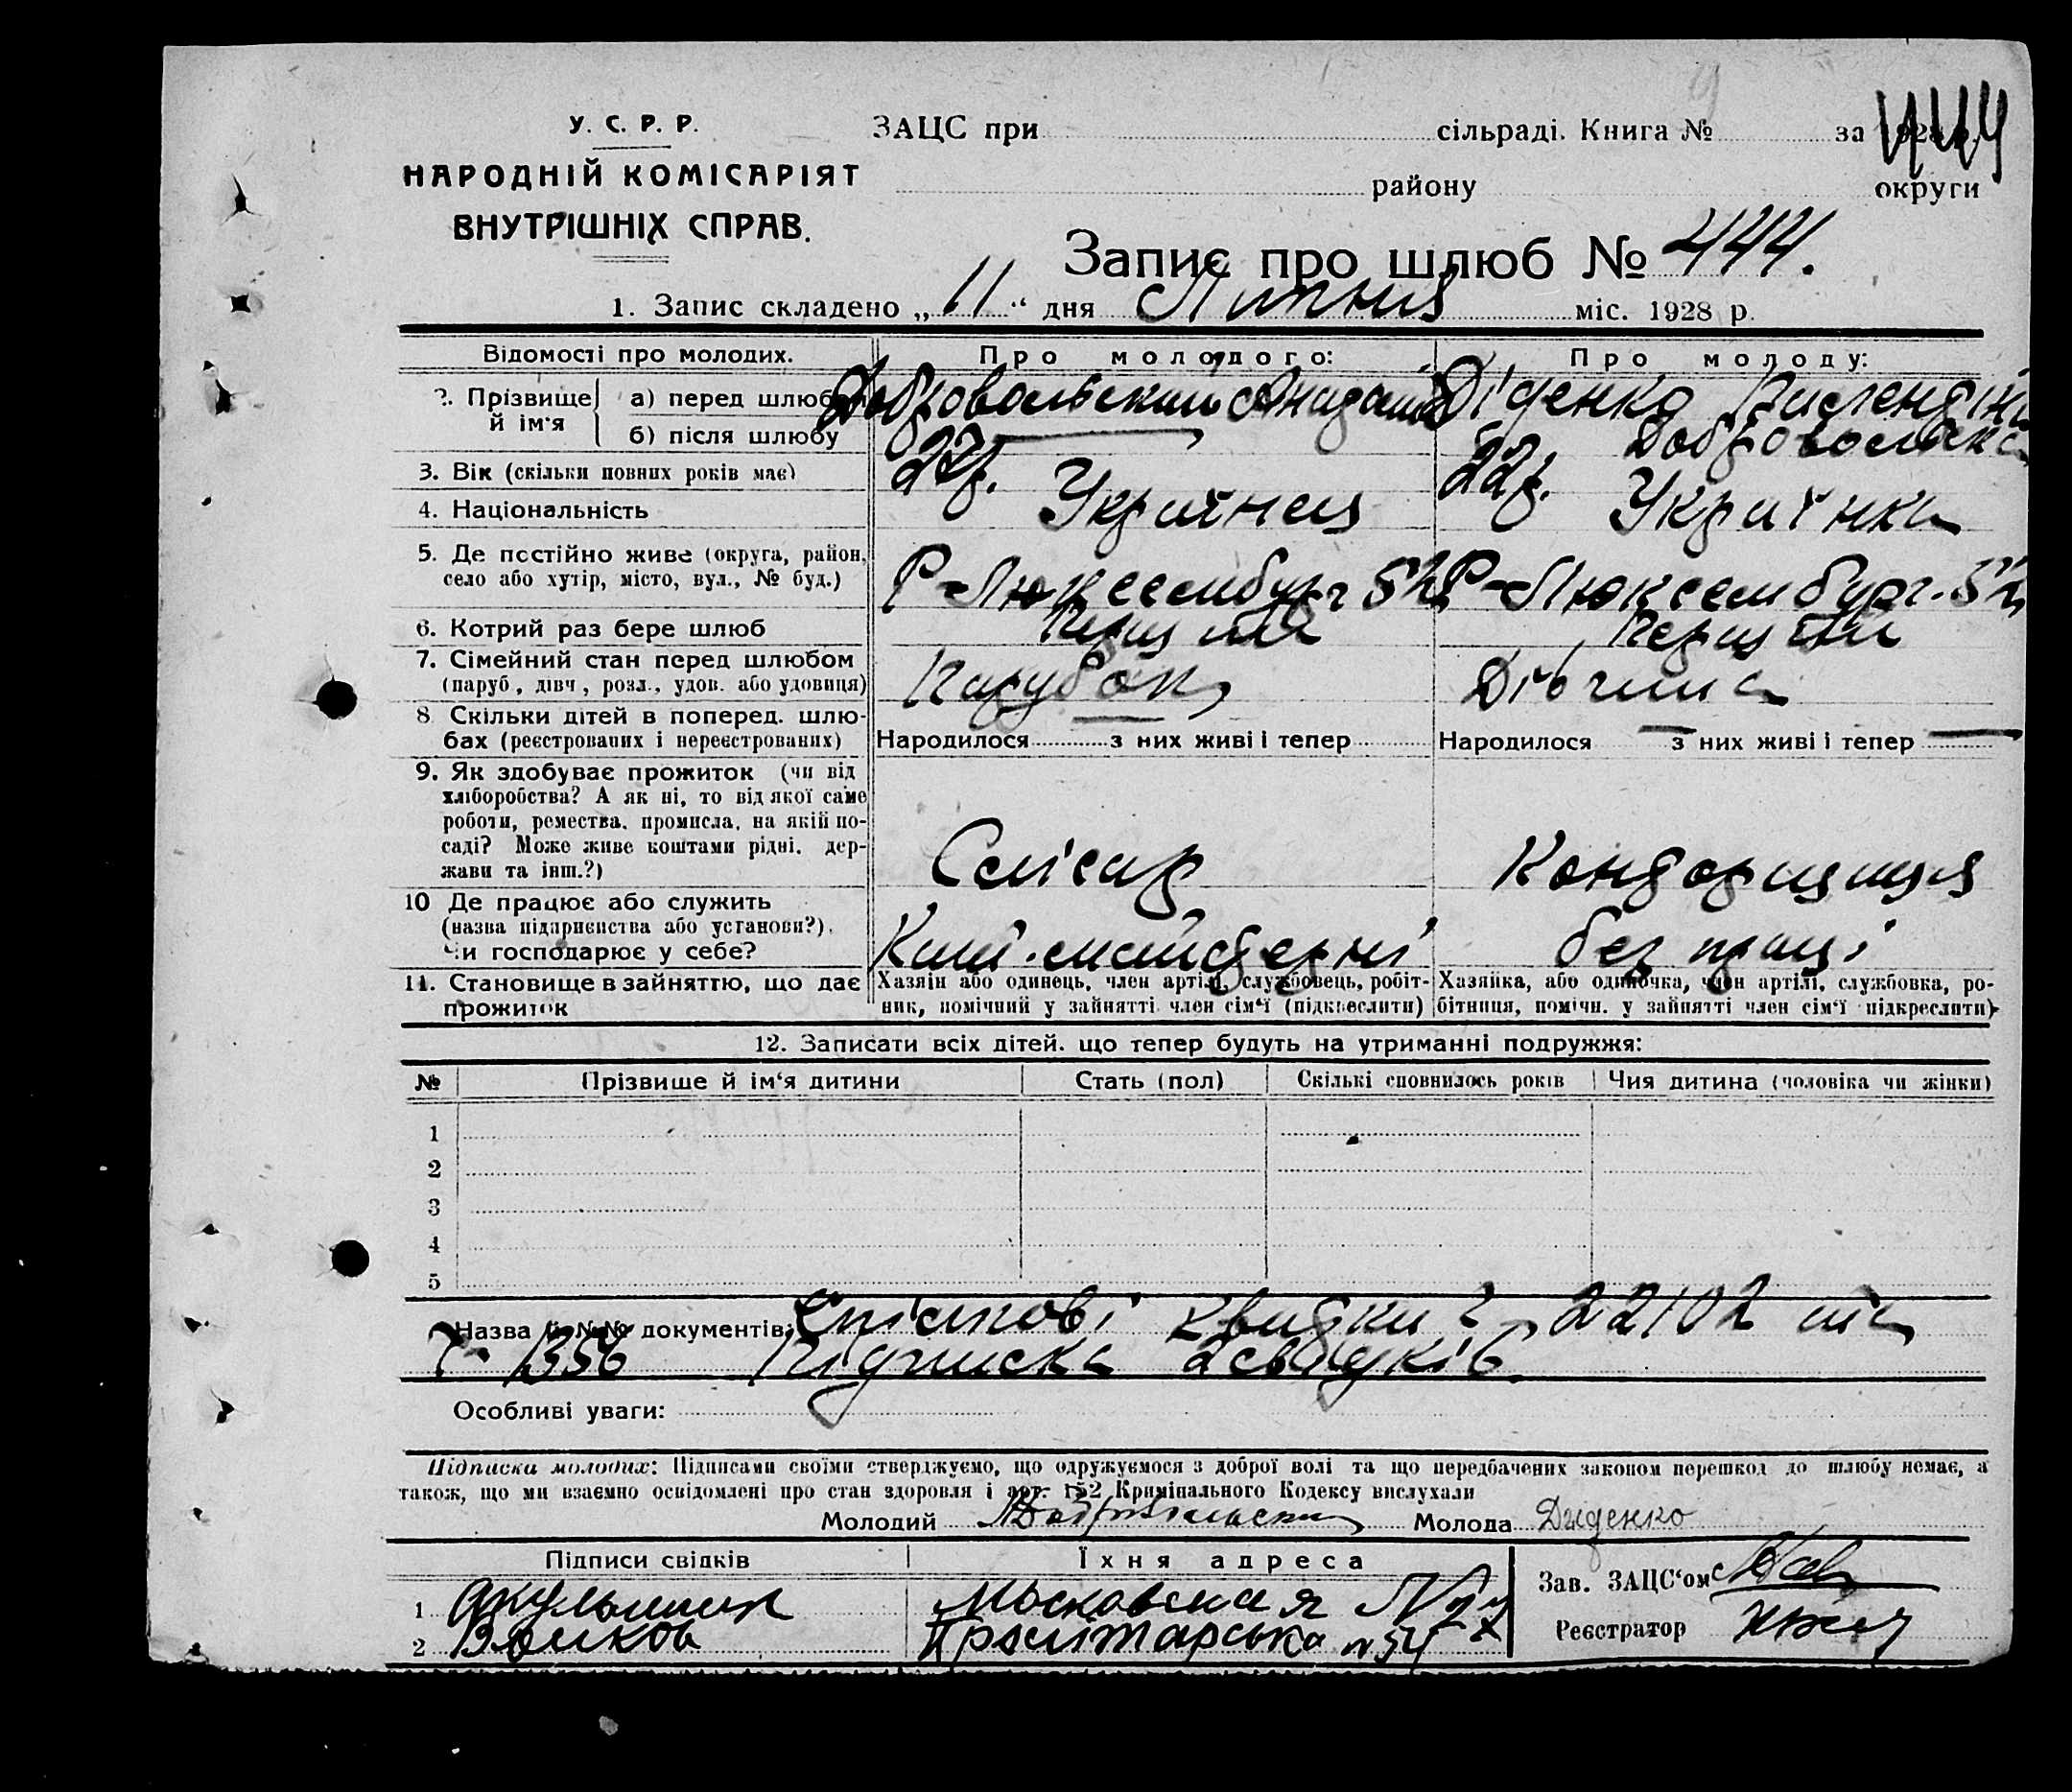 444
У. С. Р. Р.
НАРОДНІЙ КОМІСАРІЯТ
ВНУТРІШНІХ СПРАВ.
ЗАЦС при сільраді. Книга № за 1928 р.
району округи
Запис про шлюб № 444.
1. Запис складено „ 11 “ дня Липня міс. 1928 р.
Відомості про молодих. Про молодого: Про молоду:
2. Прізвище й ім'я
а) перед шлюбом Добровольський Діденко
б) після шлюбу Добровольська
3. Вік (скільки повних років має) 27 р. 22 р.
4. Національність Українец Українка
5. Де постійно живе (округа, район, село або хутір, місто, вул., № буд.) Р-Люксембург Р-Люксембург
6. Котрий раз бере шлюб Перший Перший
7. Сімейний стан перед шлюбом (паруб., дівч., розл., удов. або удовиця) Парубок Дівчина
8. Скільки дітей в поперед. шлю-
бах (реєстрованих і нереєстрованих) Народилося — з них живі і тепер Народилося — з них живі і тепер —
9. Як здобуває прожиток (чи від
хліборобства? А як ні, то від якої саме
роботи, ремества, промисла, на якій по-
саді? Може живе коштами рідні, дер-
жави та інш.?) Слісар Кондорщиця
10 Де працює або служить
(назва підприєнства або установи?).
Чи господарює у себе? майстерні без праці
11. Становище в зайняттю, що дає прожиток
Хазяін або одинець, член артілі, службовець, робіт-
ник, помічний у зайнятті член сім'ї (підкреслити)
Хазяйка, або одиночка, член артілі, службовка, ро-
бітниця, помічн. у зайнятті член сім'ї підкреслити)
12. Записати всіх дітей. що тепер будуть на утриманні подружжя:
№ Прізвище й ім'я дитини Стать (пол) Скількі сповнилось років Чия дитина (чоловіка чи жінки)
1
2
3
4
5
Назва й №№ документів: квитки 22102
1356 Підписка 2 свідків.
Особливі уваги:
Підписка молодих: Підписами своїми стверджуємо, що одружуємося з доброї волі та що передбачених законом перешкод до шлюбу немає, а
також, що ми взаємно освідомлені про стан здоровля і арт. 152 Кримінального Кодексу вислухали
Молодий Добровольский Молода Диденко
Підписи свідків Їхня адреса Зав. ЗАЦС'ом
1 Акульшин Московская N 27
2 Волков Пролітарська N 54 Реєстратор